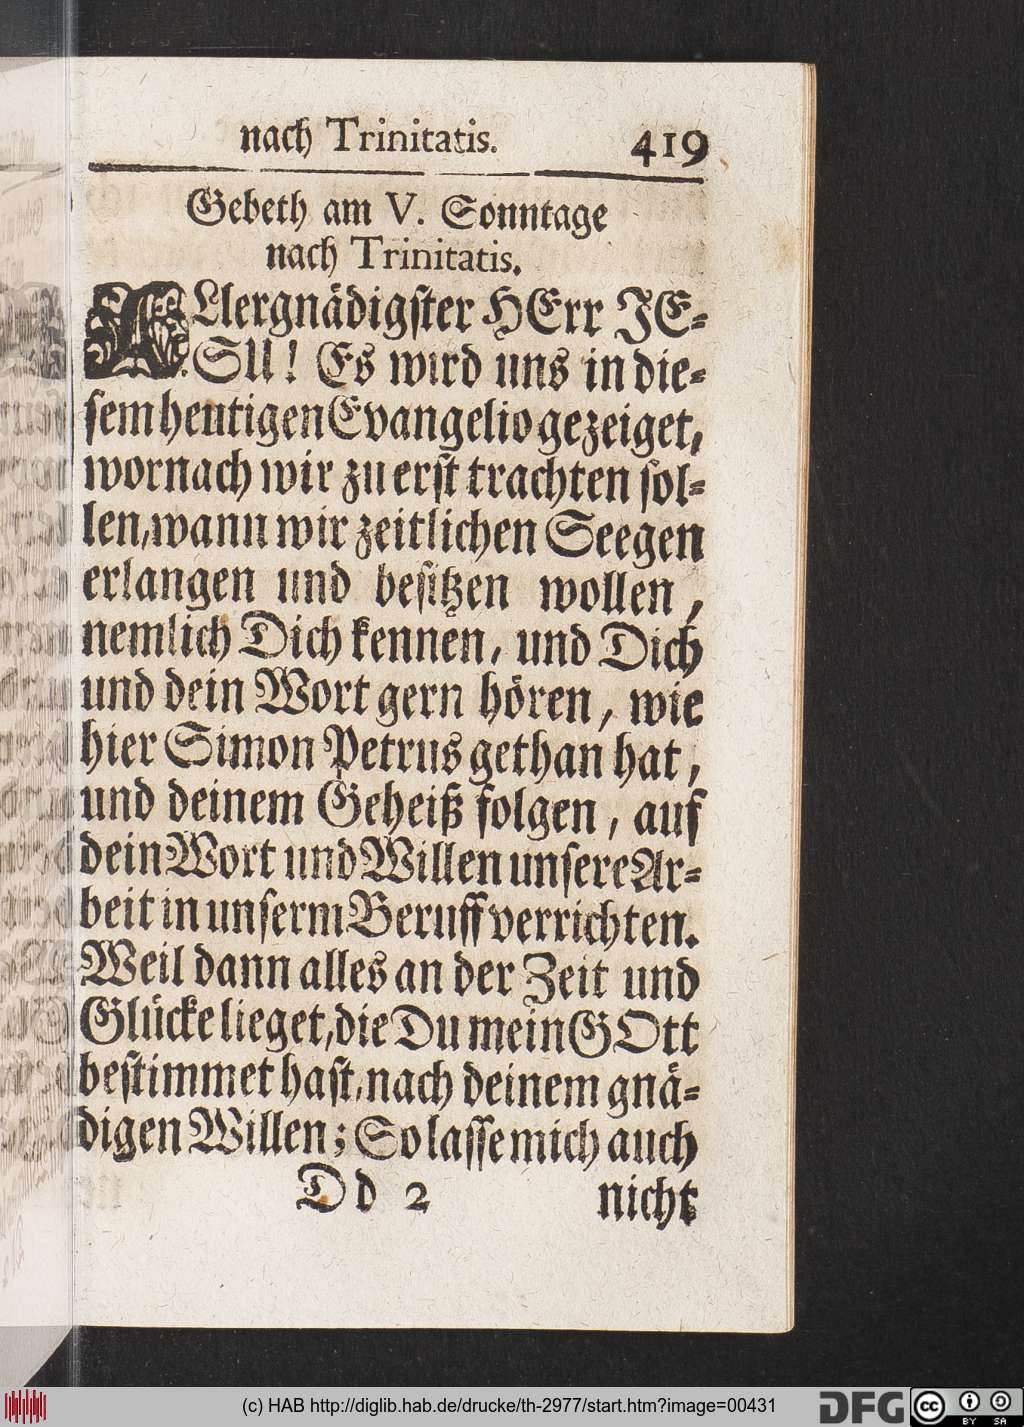 nach Trinitatis. 419
Gebeth am V. Sonntage
nach Trinitatis.
ALlergnädigster HErr JE-
SU! Es wird uns in die-
sem heutigen Evangelio gezeiget,
wornach wir zu erst trachten sol-
len, wann wir zeitlichen Seegen
erlangen und besitzen wollen,
nemlich Dich kennen, und Dich
und dein Wort gern hören, wie
hier Simon Petrus gethan hat,
und deinem Geheiß folgen, auf
dein Wort und Willen unsere Ar-
beit in unserm Beruff verrichten.
Weil dann alles an der Zeit und
Glücke lieget, die Du mein GOtt
bestimmet hast, nach deinem gnä-
digen Willen; So lasse mich auch
Dd 2 nicht
(c) HAB http://diglib.hab.de/drucke/th-2977/start.htm?image=00431
DFG
cc BY SA